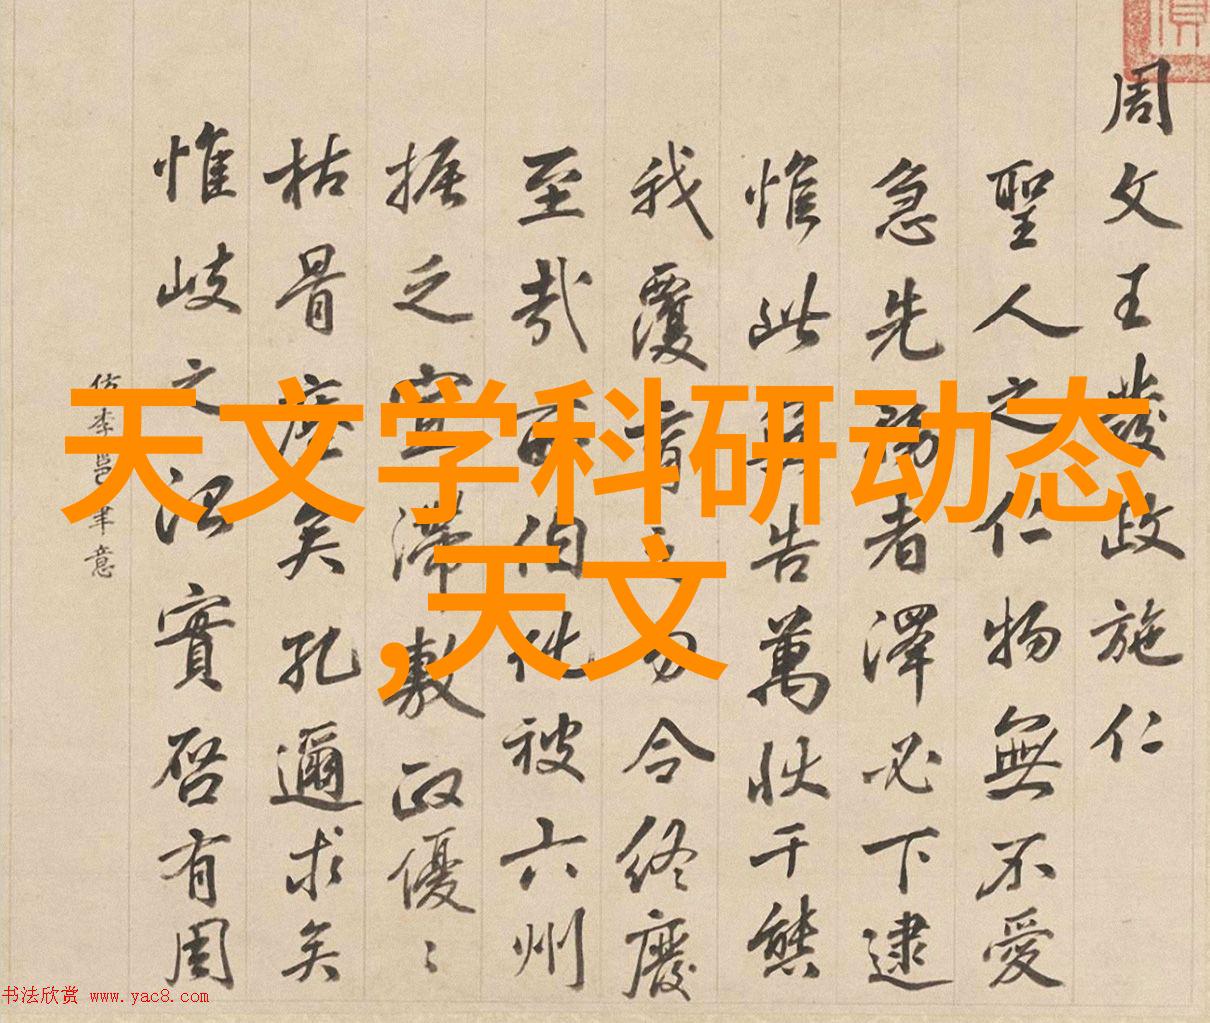 周文王發政施仁
聖人之仁物無不愛
急先務者澤必下逮
惟此告萬狀千態
我覆育之勿令終
至哉西伯化被六州
振之滯敷政優〻
枯骨矣孔邇求矣
惟岐之治實啓有周
仿李邕筆意
天文学科研动态
,天文
书法欣赏 www.yac8.com